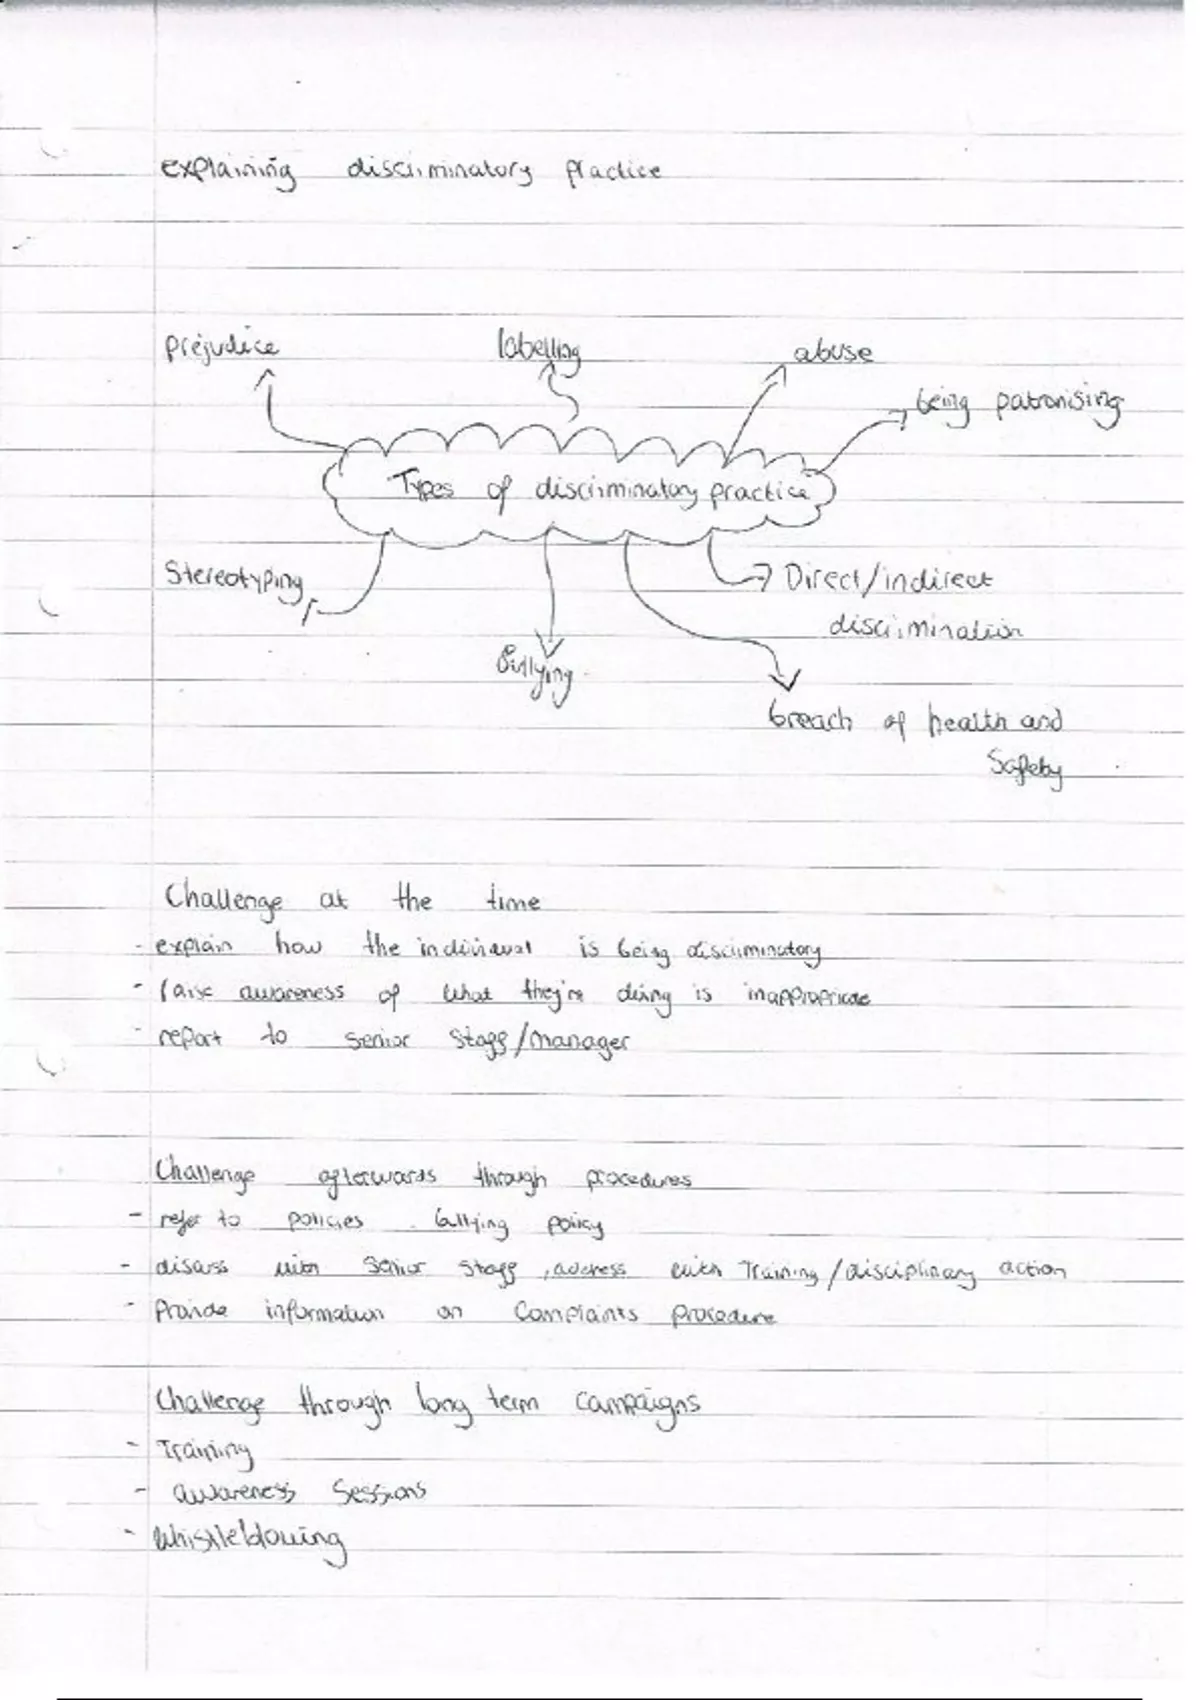 explaining discriminatory practice
prejudice
labelling
abuse
being patronising
Types of discriminatory practice
Stereotyping
Direct/indirect
discrimination
bullying
breach of health and
Safety
Challenge at the time
- explain how the individual is being discriminatory
- raise awareness of what they're doing is inappropriate
- report to senior staff/manager
Challenge afterwards through procedures
- refer to policies . bullying policy
- discuss with senior staff, address with Training/disciplinary action
- Provide information on Complaints procedure
Challenge through long term campaigns
- Training
- awareness Sessions
- Whistleblowing